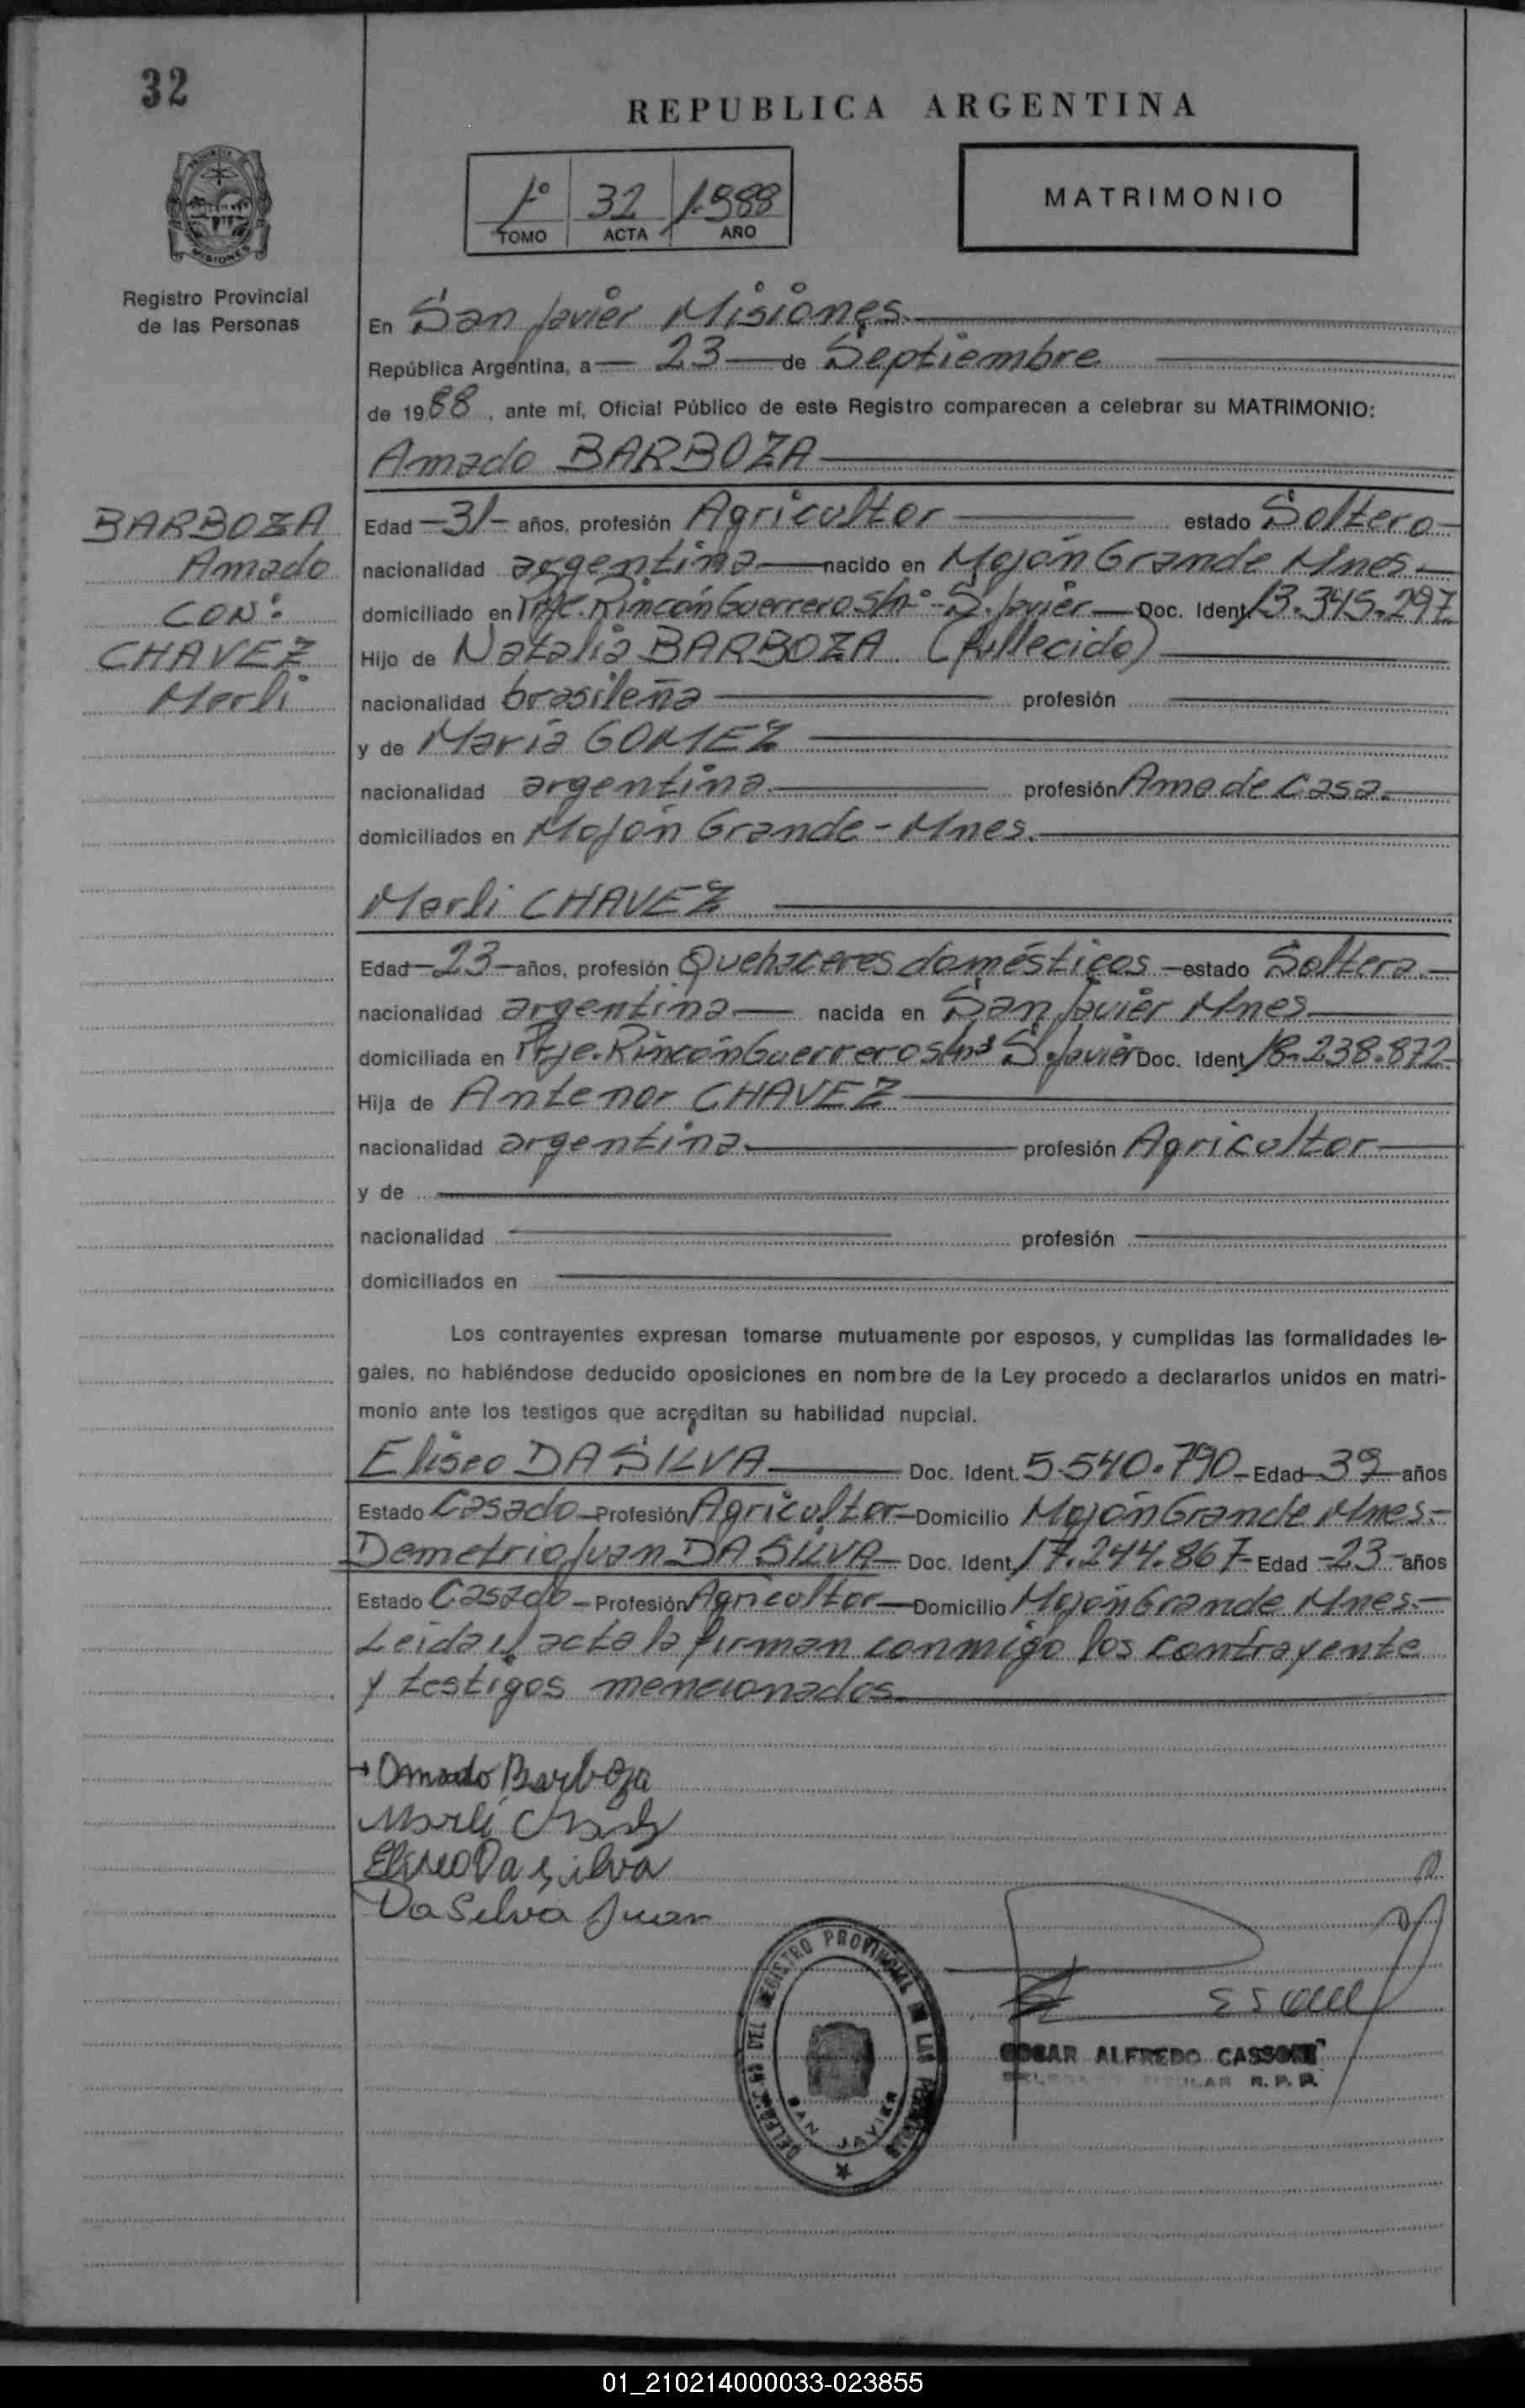 32
REPUBLICA ARGENTINA
1º 32 1988
TOMO ACTA AÑO
MATRIMONIO
MISIONES
Registro Provincial
de las Personas
En San Javier Misiones
República Argentina, a 23 de Septiembre
de 1988, ante mí, Oficial Público de este Registro comparecen a celebrar su MATRIMONIO:
Amado BARBOZA
BARBOZA
Amado
CON:
CHAVEZ
Merli
Edad -31- años, profesión Agricultor estado Soltero
nacionalidad argentina nacido en Mojón Grande Mnes.
domiciliado en Pje. Rincón Guerrero S/nº - S. Javier Doc. Ident. 13.345.297
Hijo de Natalia BARBOZA (fallecido)
nacionalidad brasileña profesión
y de María GOMEZ
nacionalidad argentina profesión Ama de Casa.
domiciliados en Mojón Grande - Mnes.
Merli CHAVEZ
Edad -23- años, profesión Quehaceres domésticos - estado Soltera.
nacionalidad argentina nacida en San Javier Mnes
domiciliada en Pje. Rincón Guerrero S/nº S. Javier Doc. Ident. 18.238.872
Hija de Antenor CHAVEZ
nacionalidad argentina. profesión Agricultor
y de
nacionalidad profesión
domiciliados en
Los contrayentes expresan tomarse mutuamente por esposos, y cumplidas las formalidades le-
gales, no habiéndose deducido oposiciones en nombre de la Ley procedo a declararlos unidos en matri-
monio ante los testigos que acreditan su habilidad nupcial.
Eliseo DA SILVA Doc. Ident. 5.540.790 - Edad 39 años
Estado Casado - Profesión Agricultor - Domicilio Mojón Grande Mnes.-
Demetrio Juan DA SILVA Doc. Ident. 17.244.867 - Edad -23- años
Estado Casado - Profesión Agricultor - Domicilio Mojón Grande Mnes.-
Leida el acta la firman conmigo los contrayente
y testigos mencionados.
Amado Barboza
Merli Chavez
Eliseo Da Silva
Da Silva Juan
DELEGACION DEL REGISTRO PROVINCIAL DE LAS PERSONAS
SAN JAVIER
ALFREDO
TITULAR R. P. P.
01_210214000033-023855